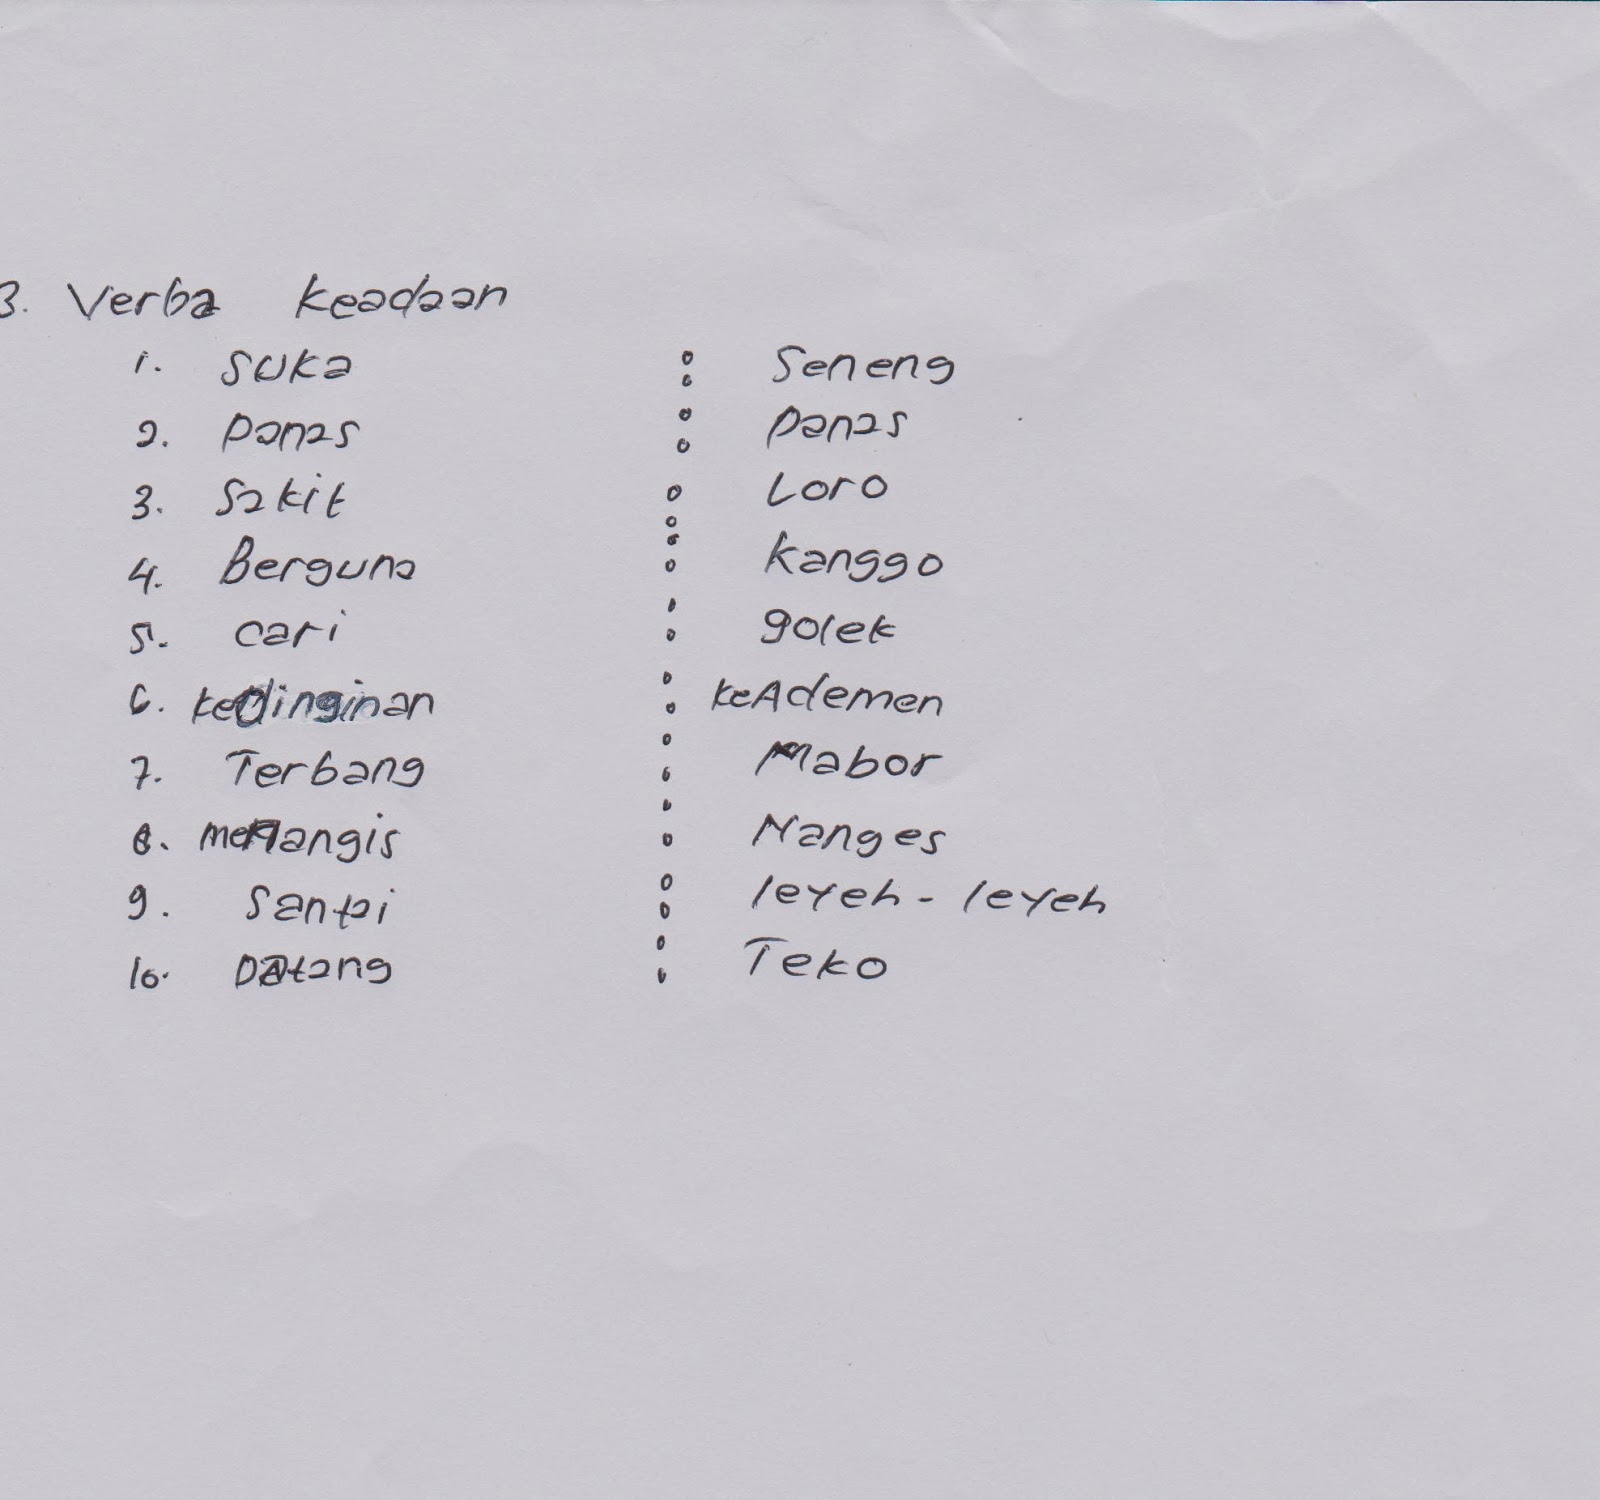 3. Verba keadaan
1. Suka : Seneng
2. Panas : Panas
3. Sakit : Loro
4. Berguna : Kanggo
5. cari : golek
6. kedinginan : keAdemen
7. Terbang : Mabor
8. menangis : Nanges
9. Santai : leyeh - leyeh
10. DAtang : Teko